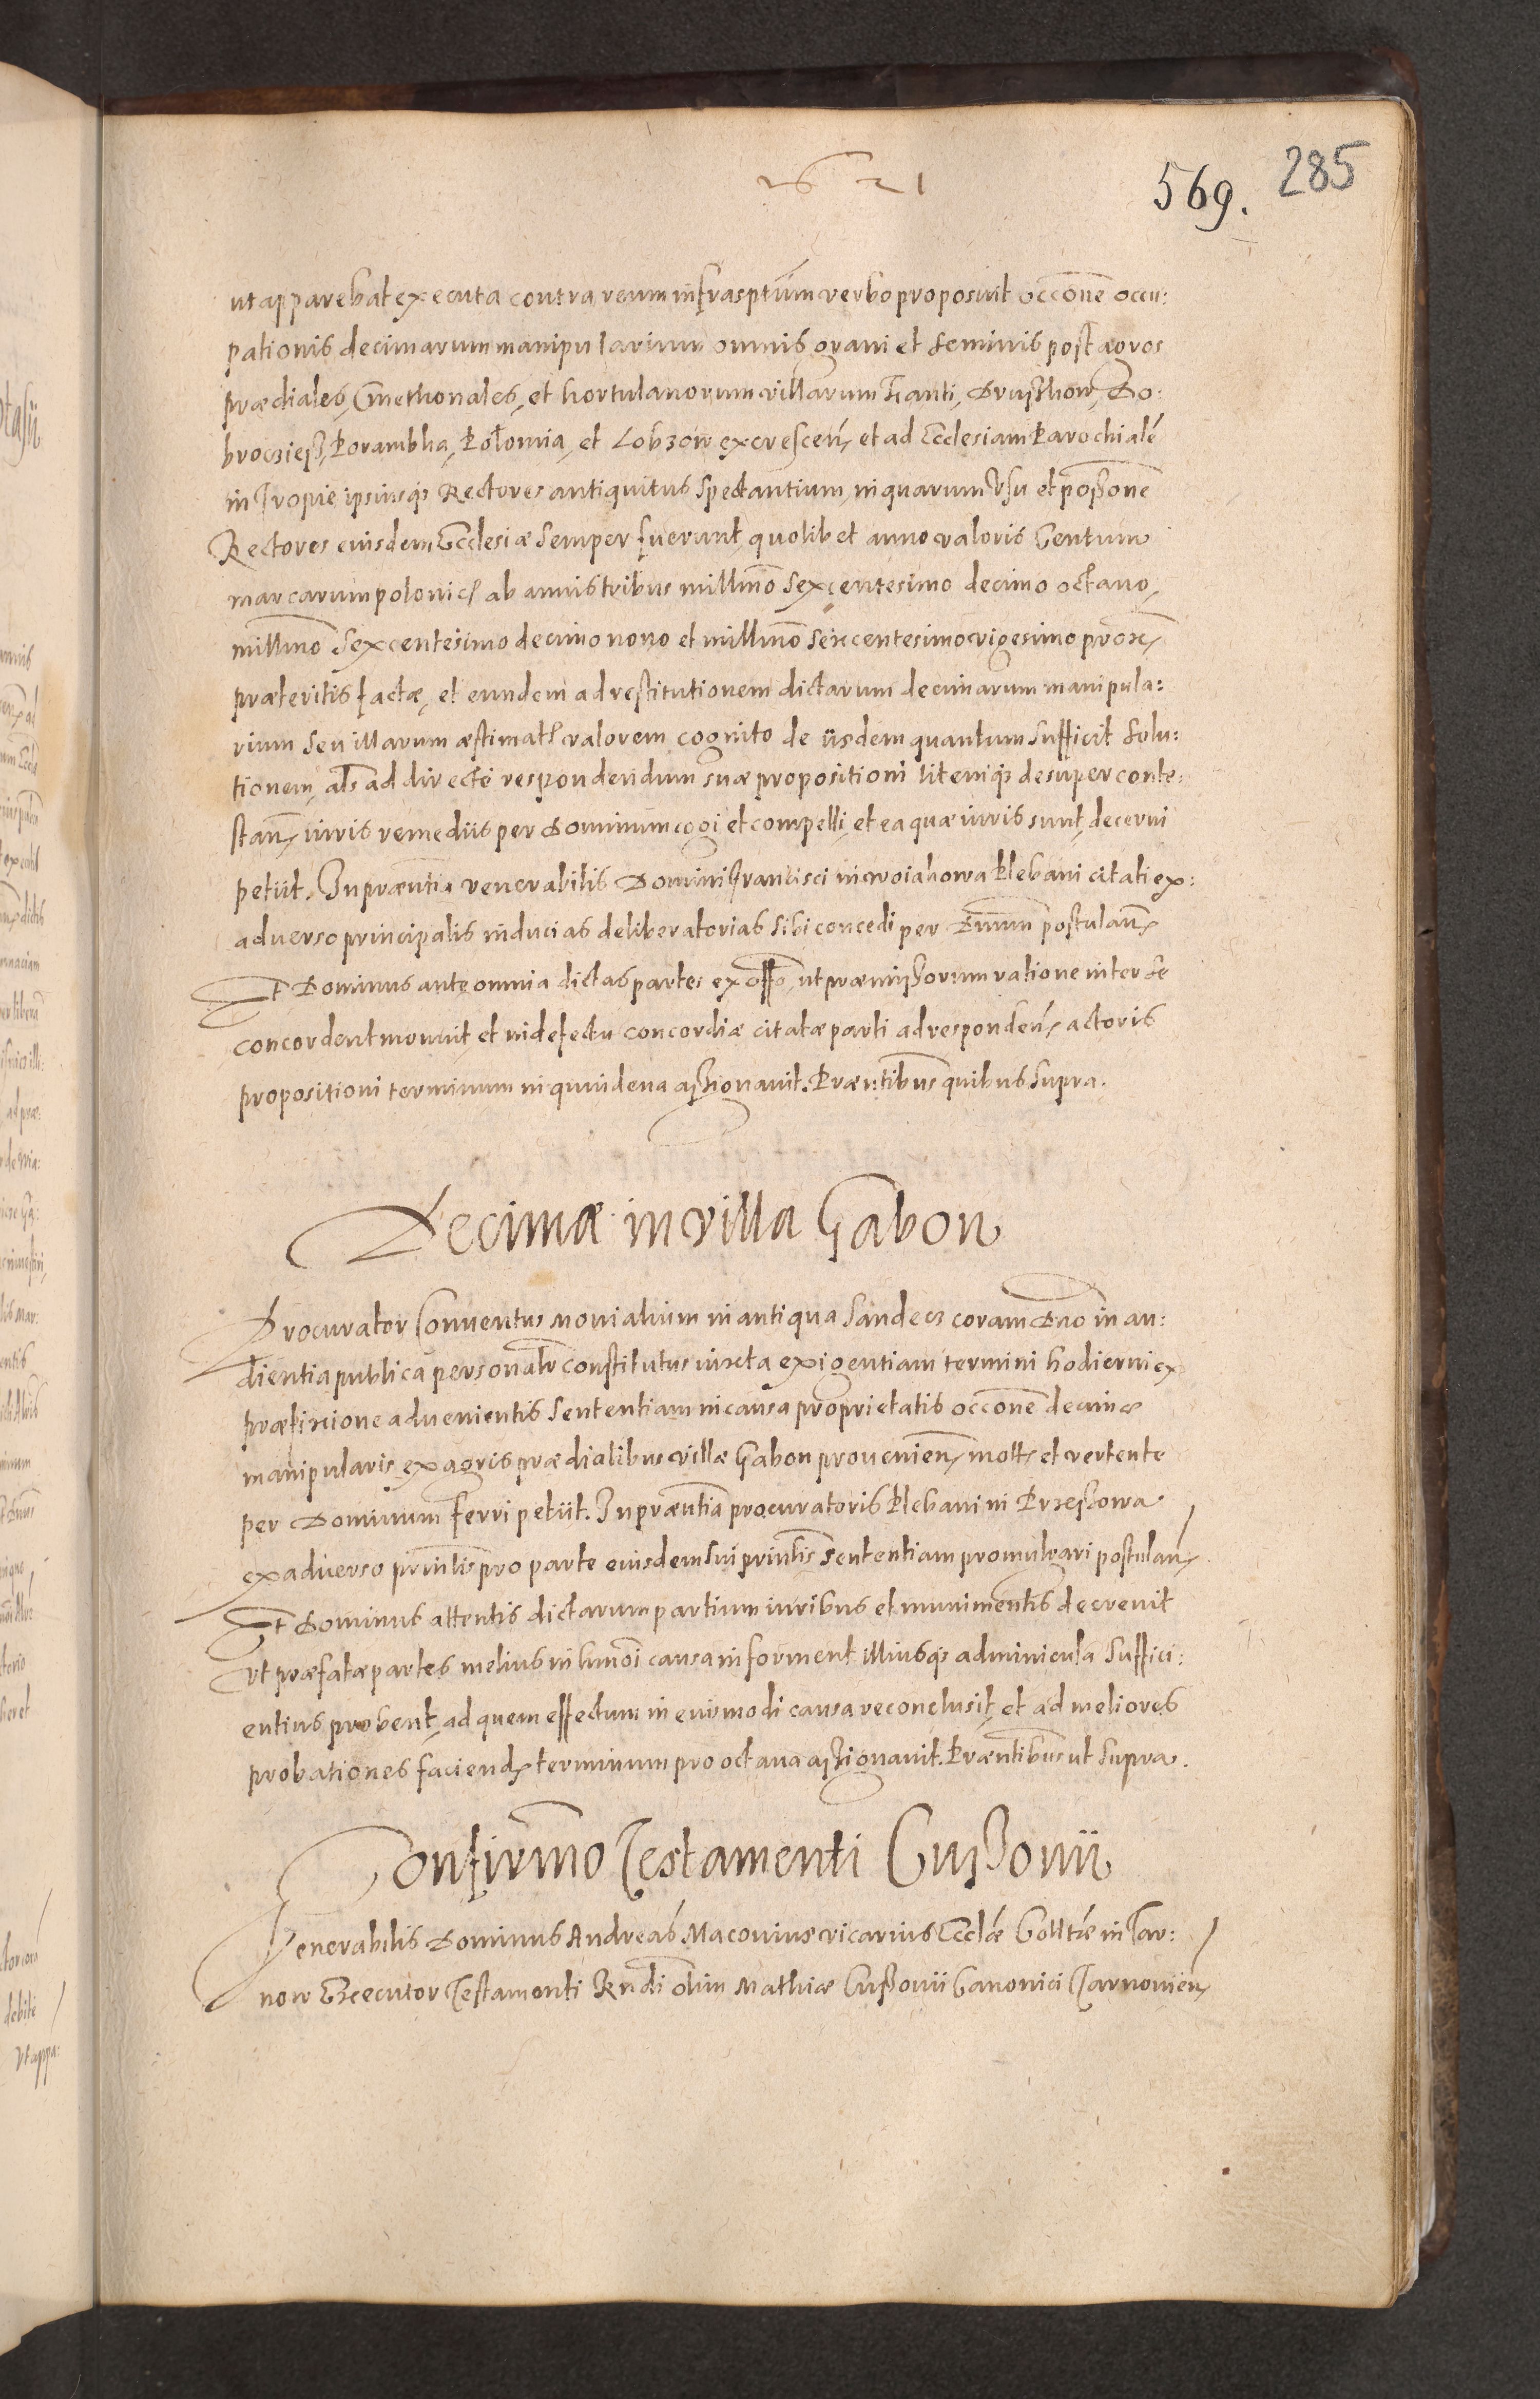 1621
569. 285
ut apparebat executa contra reum infrasptum verbo proposuit occōne occu:
pationis decimarum manipularium omnis grani et seminis post agros
prædiales, Cmethonales, et hortulanorum villarum Kanti, Druszkow, Do:
brocziesz, Porambka, Polomia, et Lobzow excrescen, et ad Ecclesiam Parochialē
in Tropie ipsiusq; Rectores antiquitus spectantium, in quarum usu et possone
Rectores eiusdem Ecclesiæ semper fuerunt, quolibet anno valoris Centum
marcarum polonicl ab annis tribus millmo sexcentesimo decimo octavo,
millmo sexcentesimo decimo nono et millmo sexcentesimo vigesimo prox
præteritis factæ, et eundem ad restitutionem dictarum decimarum manipula:
rium seu illarum æstimatl valorem cognito de iisdem quantum sufficit solu:
tionem, als ad directe respondendum suæ propositioni litemq; desuper conte:
stan iuris remediis per Dominum cogi et compelli, et ea quæ iuris sunt, decerni
petiit. In præntia venerabilis Domini Francisci in Woiakowa Plebani citati ex:
adverso principalis inducias deliberatorias sibi concedi per Dnum postulan
Et Dominus ante omnia dictas partes ex offo, ut præmissorum ratione inter se
concordent monuit, et in defectu concordiæ citatæ parti ad responden actoris
propositioni terminum in quindena assignavit. Præntibus quibus supra.
Decimæ in villa Gabon
Procurator Conventus Monialium in antiqua Sandecz coram Dno in au:
dientia publica personalr constitutus iuxta exigentiam termini hodierni ex
præfixione advenientis sententiam in causa proprietatis occōne decimæ
manipularis, ex agris prædialibus villæ Gabon provenien, mott et vertente
per Dominum ferri petiit. In præntia procuratoris Plebani in Przeszowa
ex adverso prinlis pro parte eiusdem sui prinlis sententiam promulgari postulan
Et Dominus attentis dictarum partium iuribus et munimentis decrevit
ut præfatæ partes melius in hmoi causa informent illiusq; adminicula suffici:
entius probent, ad quem effectum in eiusmodi causa reconclusit, et ad meliores
probationes faciend terminum pro octava assignavit. Præntibus ut supra.
Confirmo Testamenti Cuszovii
Venerabilis Dominus Andreas Macovius vicarius Ecclæ Colltæ in Tar:
now Executor Testamenti Rndi olim Mathiæ Cuszovii Canonici Tarnovien